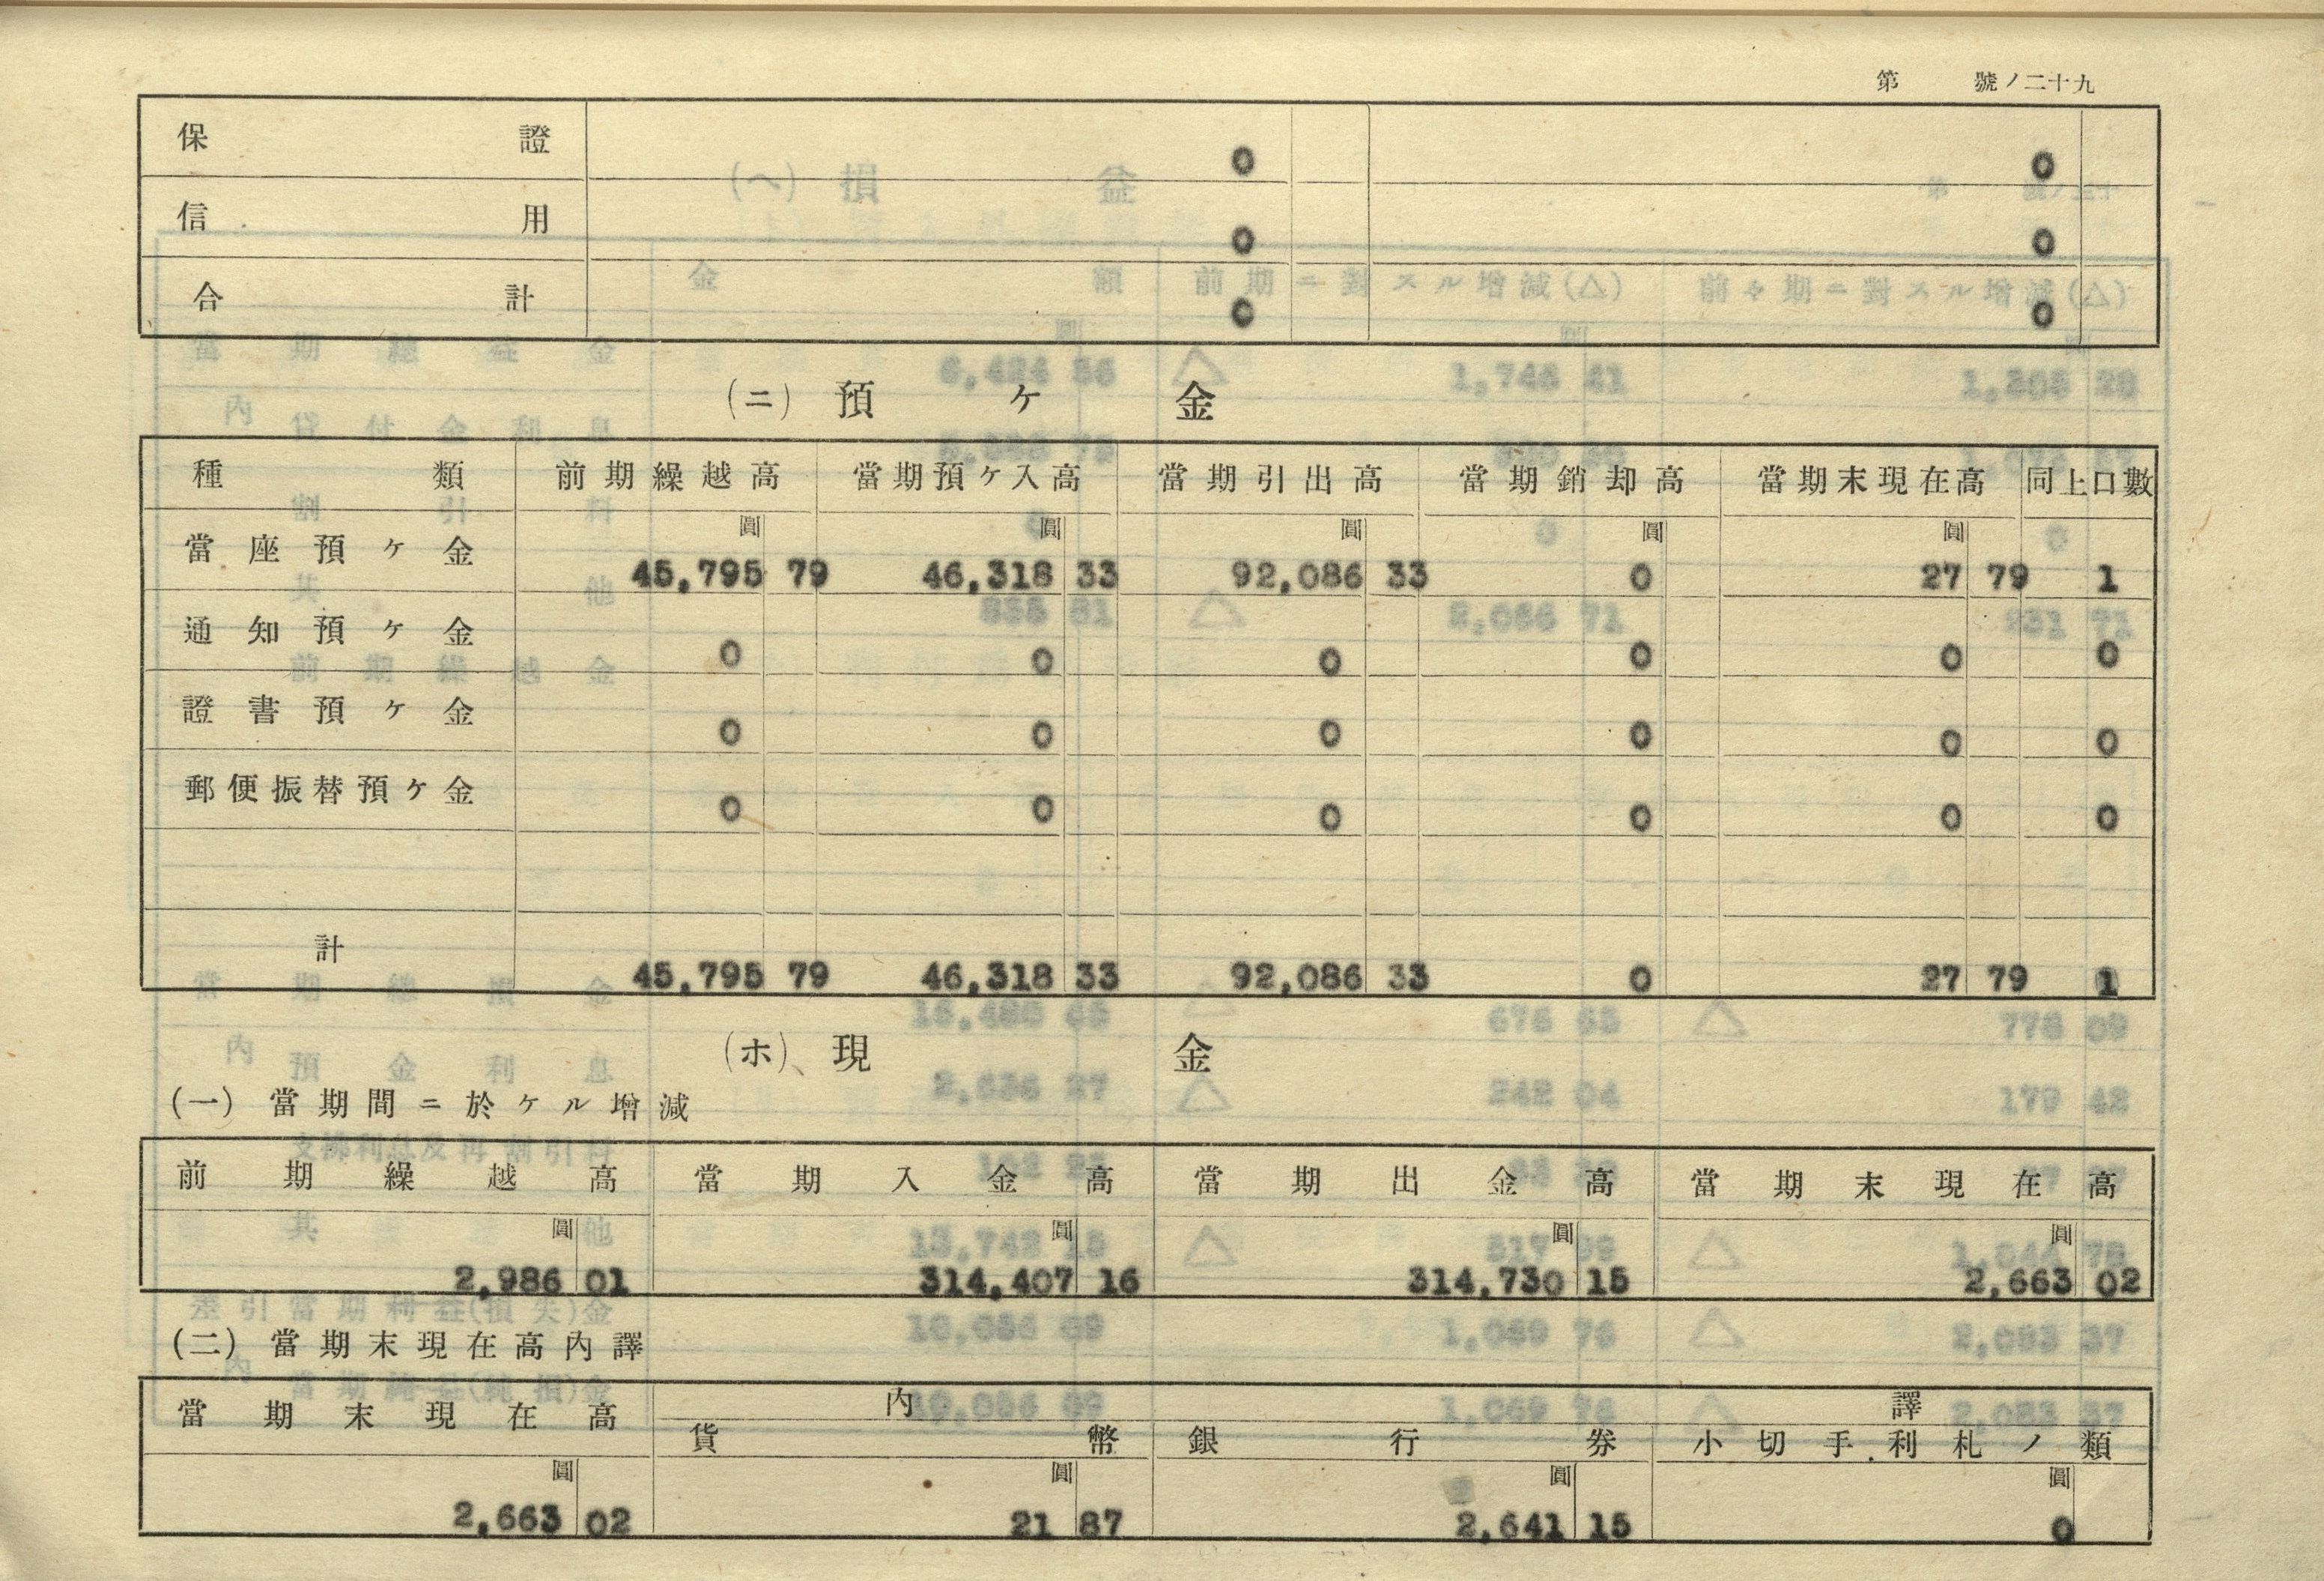 第 號ノ二十九
保證 0 0
信用 0 0
合計 0 0
(ニ) 預ケ金
種類 前期繰越高 當期預ケ入高 當期引出高 當期銷却高 當期末現在高 同上口數
圓 圓 圓 圓 圓
當座預ケ金 45,795 79 46,318 33 92,086 33 0 27 79 1
通知預ケ金 0 0 0 0 0 0
證書預ケ金 0 0 0 0 0 0
郵便振替預ケ金 0 0 0 0 0 0
計 45,795 79 46,318 33 92,086 33 0 27 79 1
(ホ)、現金
(一) 當期間ニ於ケル增減
前期繰越高 當期入金高 當期出金高 當期末現在高
圓 圓 圓 圓
2,986 01 314,407 16 314,730 15 2,663 02
(二) 當期末現在高內譯
當期末現在高 內譯
貨幣 銀行券 小切手利札ノ類
圓 圓 圓 圓
2,663 02 21 87 2,641 15 0